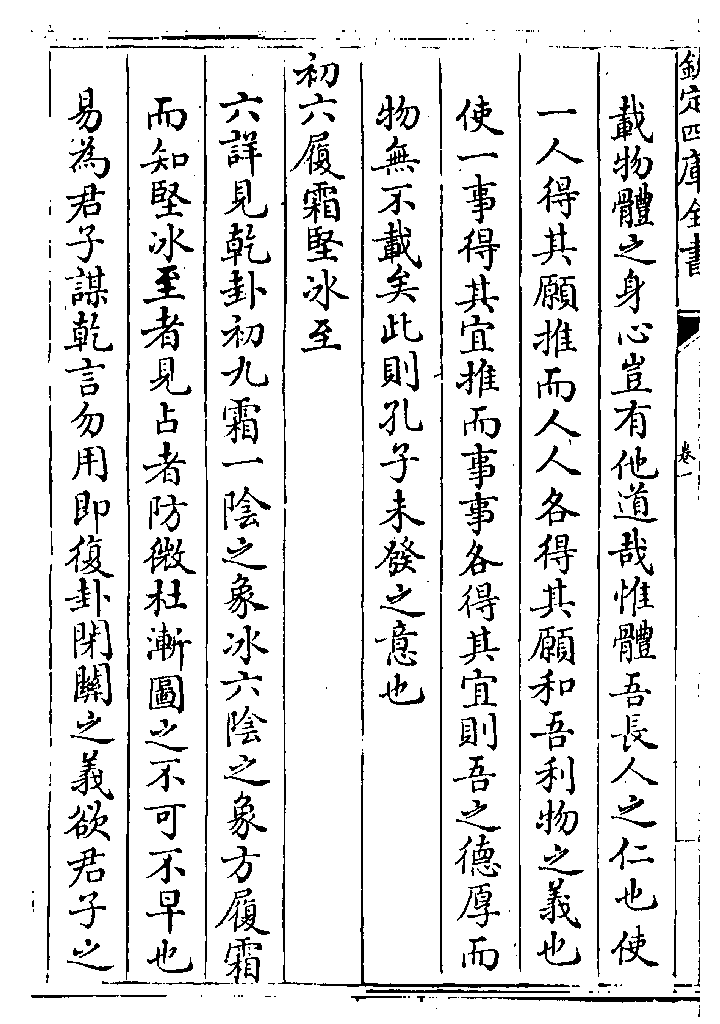 欽定四庫全書
卷一
載物體之身心豈有他道哉惟體吾長人之仁也使
一人得其願推而人人各得其願和吾利物之義也
使一事得其宜推而事事各得其宜則吾之德厚而
物無不載矣此則孔子未發之意也
初六履霜堅冰至
六詳見乾卦初九霜一陰之象冰六陰之象方履霜
而知堅冰至者見占者防微杜漸圖之不可不早也
易為君子謀乾言勿用即復卦閉關之義欲君子之